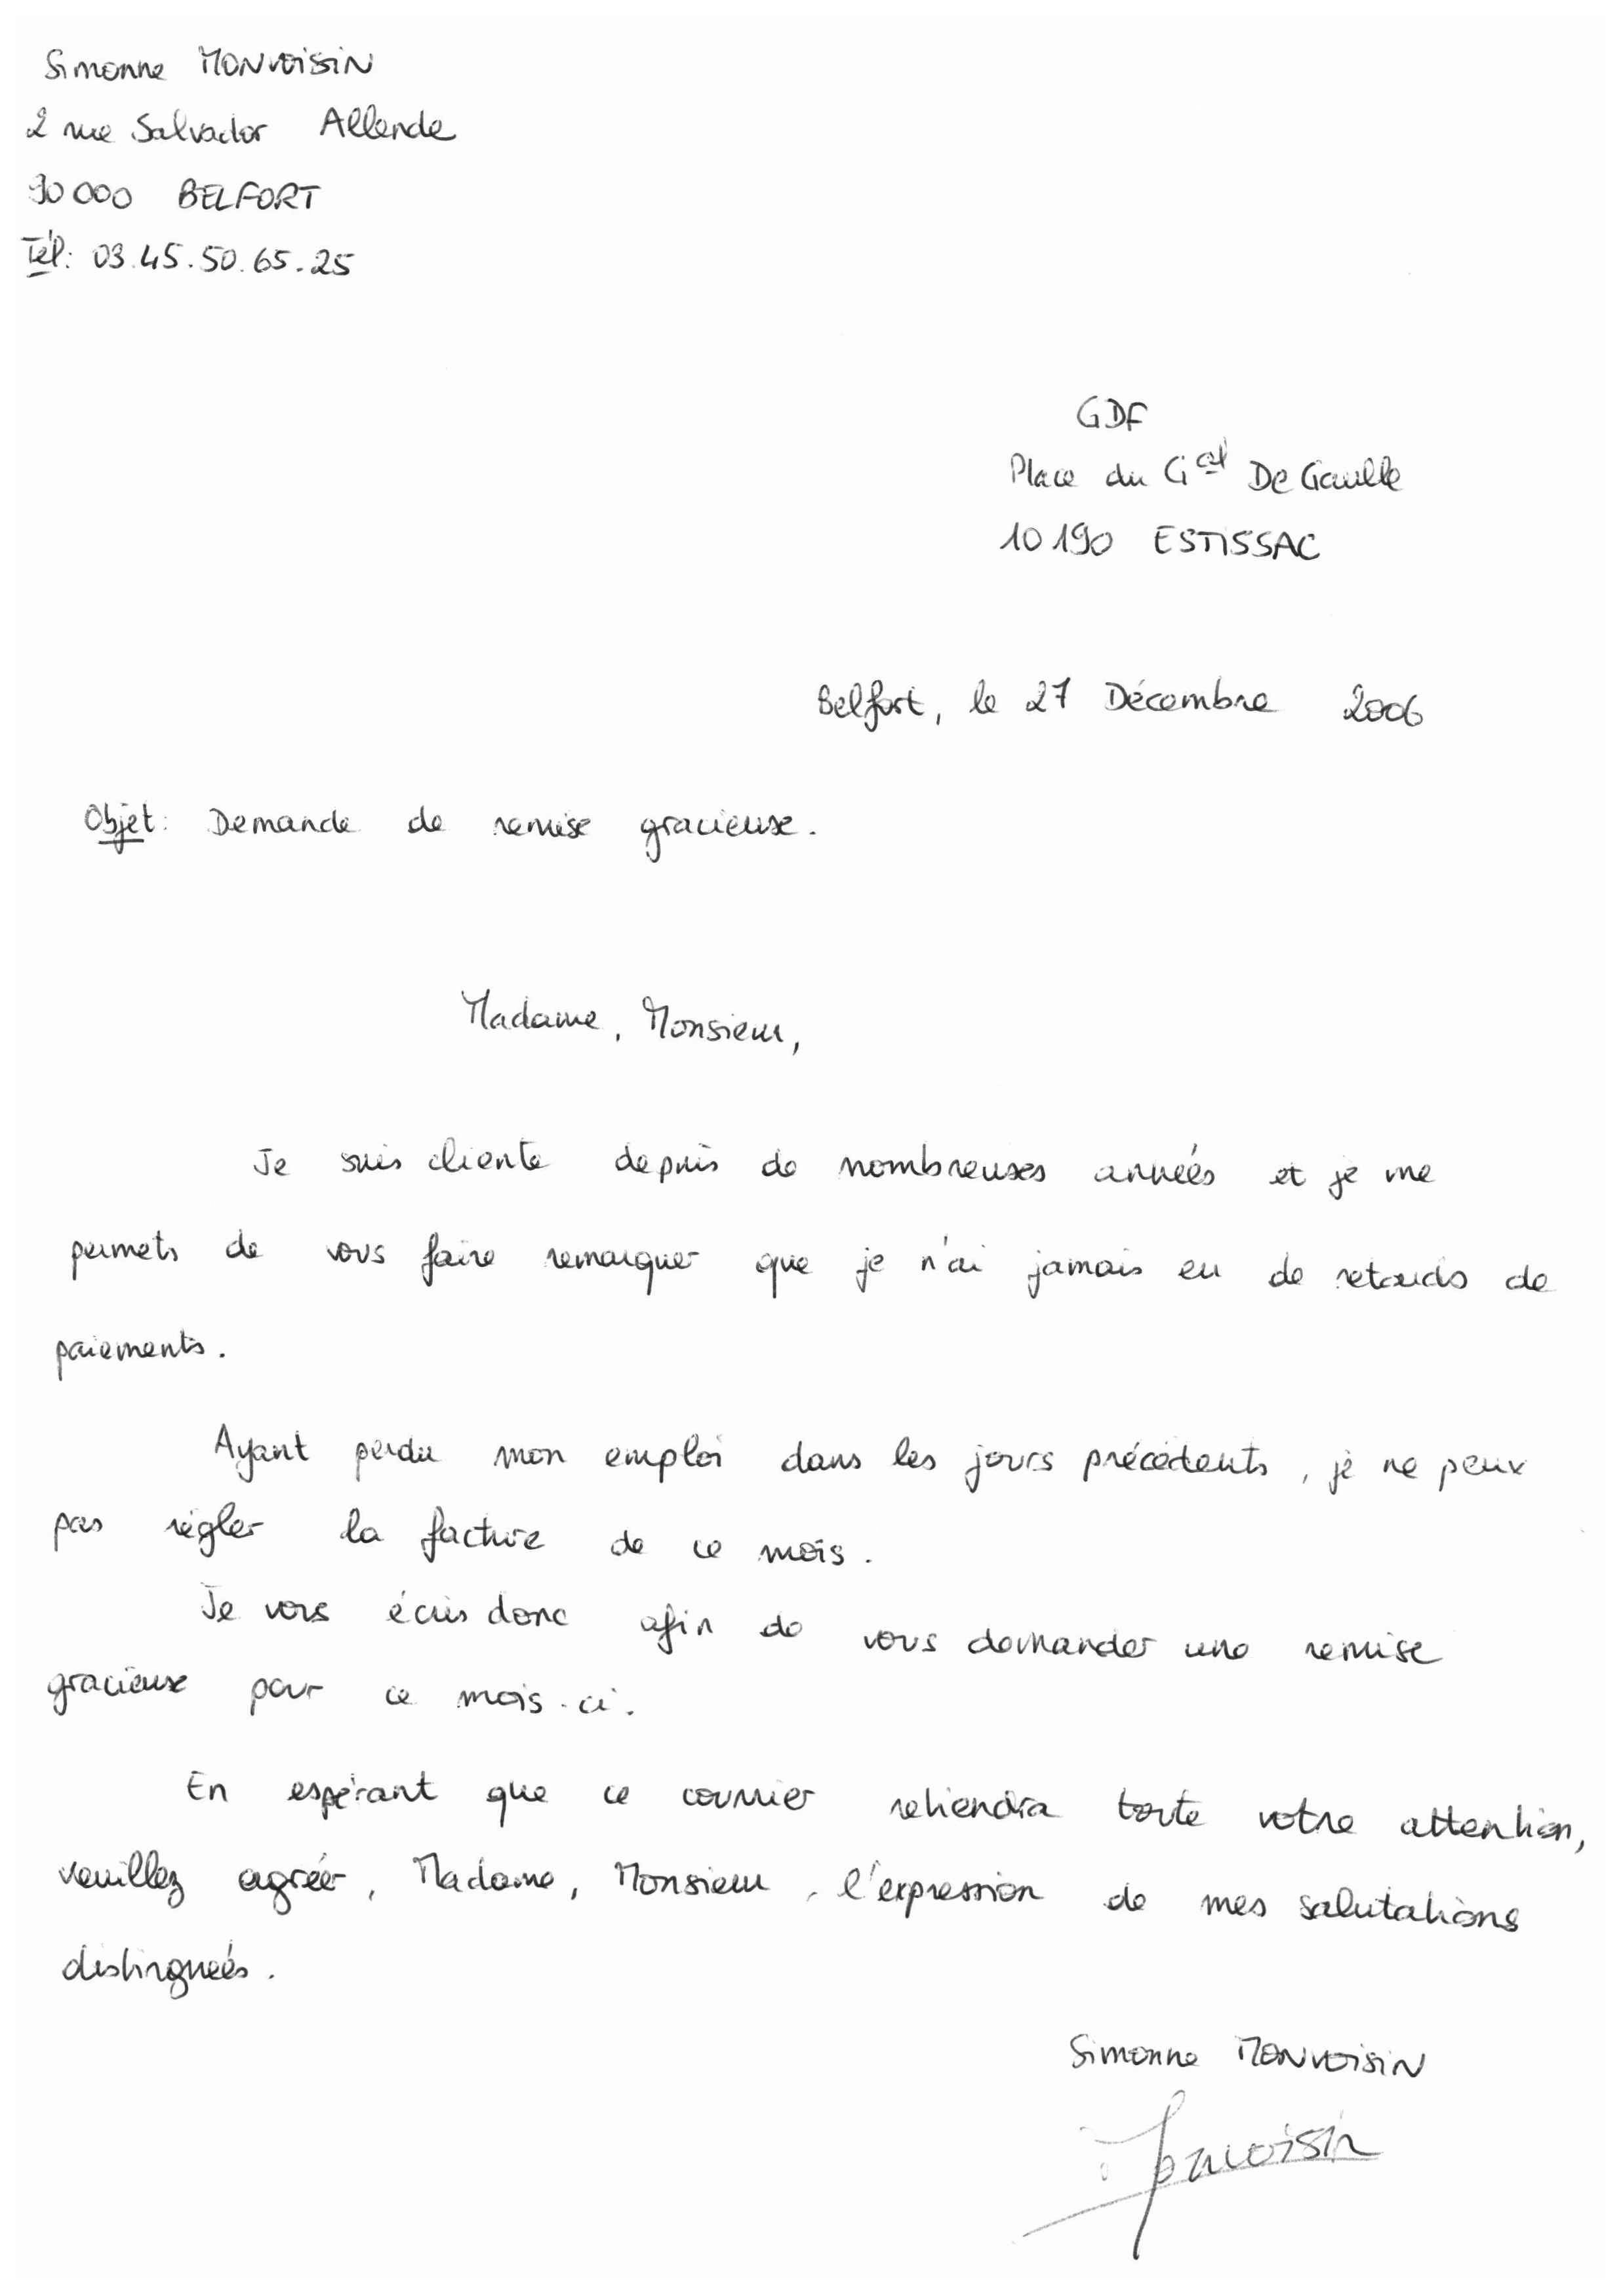 Simonne MONVOISIN
2 rue Salvador Allende
90000 BELFORT
Tél: 03.45.50.65.25
GDF
Place du Gal De Gaulle
10190 ESTISSAC
Belfort, le 27 Décembre 2006
Objet: Demande de remise gracieuse.
Madame, Monsieur,
Je suis cliente depuis de nombreuses années et je me
permets de vous faire remarquer que je n'ai jamais eu de retards de
paiements.
Ayant perdu mon emploi dans les jours précédents, je ne peux
pas régler la facture de ce mois.
Je vous écris donc afin de vous demander une remise
gracieuse pour ce mois-ci.
En espérant que ce courrier retiendra toute votre attention,
veuillez agréer, Madame, Monsieur, l'expression de mes salutations
distinguées.
Simonne MONVOISIN
Monvoisin